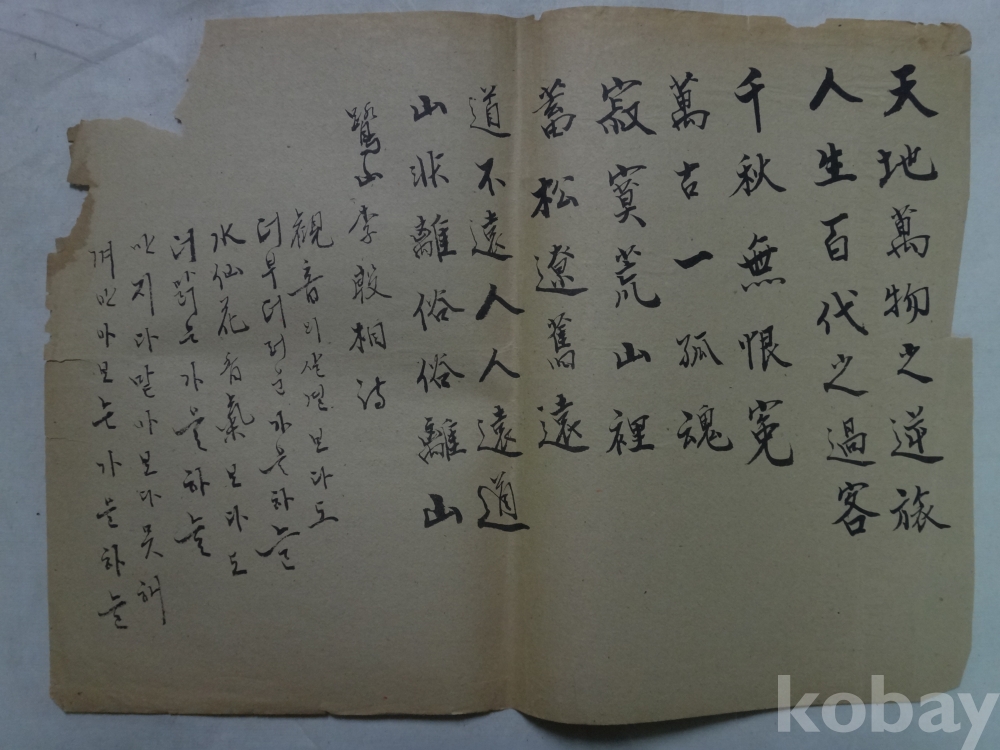 天地萬物之逆旅
人生百代之過客
千秋無恨冤
萬古一孤魂
寂寞荒山裡
蓄松遼舊遠
道不遠人人遠道
山非離俗俗離山
鷺山李殷相诗
観音의살결보다도
더부더러운가을하늘
水仙花香氣보다도
더맑은가을하늘
만지다맡아보다못해
껴안아보는가을하늘
kobay